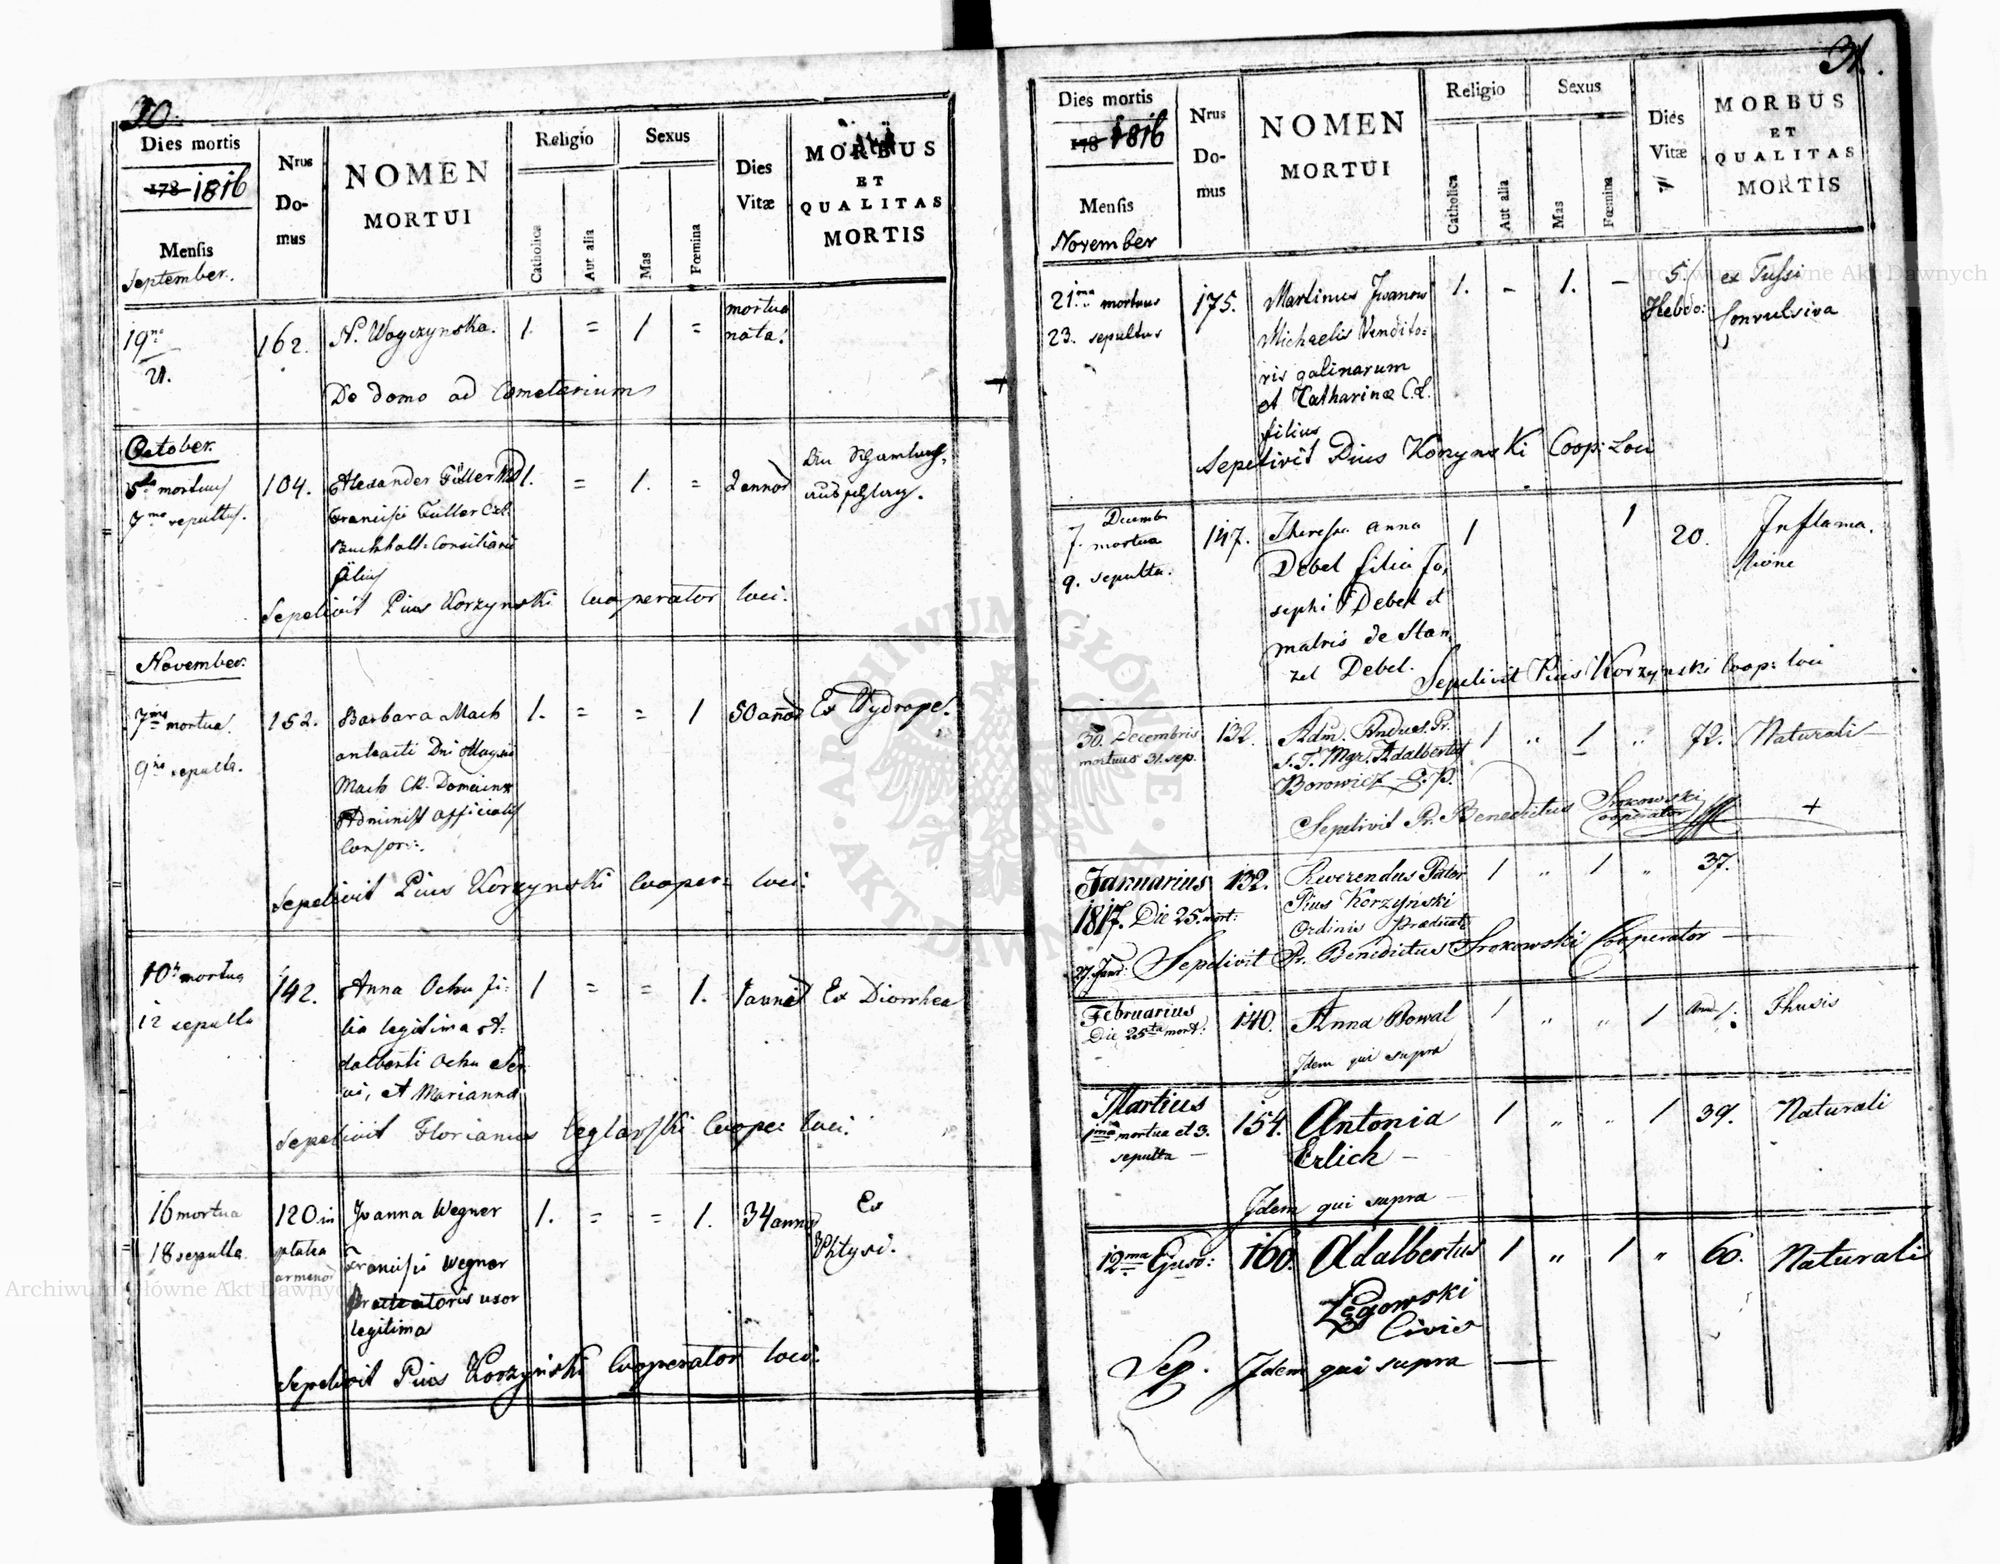 30.
Dies mortis
178 1816
Mensis
September.
Nrus
Do-
mus
NOMEN
MORTUI
Religio
Catholica
Aut alia
Sexus
Mas
Fœmina
Dies
Vitæ
MORBUS
ET
QUALITAS
MORTIS
19na
21.
162.
N. Woyczynska.
1. = 1 =
mortua
nata.
De domo ad Cometerium
October.
5ta mortuus
7ma sepultus.
104.
Alexander Füller
Francisci Füller
Buchhalt: Consiliarii
filius
1. = 1. =
2 annor
ausschlag.
Sepelivit Pius Korzynski Cooperator loci.
November.
7ma mortua.
9na sepulta.
152.
Barbara Mach
Mach CR. Domain
Administ officialis
Consors.
1. = = 1
50 annor
Ex Hydrope.
Sepelivit Pius Korzynski Cooper= loci.
10 mortua
12 sepulta
142.
Anna Ochu fi-
lia legitima A-
dalberti Ochu
et Marianna
1 = = 1.
1 anni
Ex Diorrhea
Sepelivit Florianus Ceglarski Cooper loci.
16 mortua
18 sepulta
120 in
platea
armenor
Joanna Wegner
Francisci Wegner
uxor
legitima
1. = = 1.
34 annor
Ex
Phtysi.
Sepelivit Pius Korzyński Cooperator loci.
31.
Dies mortis
178 1816
Mensis
November
Nrus
Do-
mus
NOMEN
MORTUI
Religio
Catholica
Aut alia
Sexus
Mas
Fœmina
Dies
Vitæ
MORBUS
ET
QUALITAS
MORTIS
21ma mortuus
23. sepultus
175.
Martinus Iwanow
Michaelis Vendito=
ris galinarum
et Catharinæ C.L.
filius
1. – 1. –
5.
Hebdo:
ex Tussi
Convulsiva
Sepelivit Pius Konynski Coop: Loci
Decemb
7. mortua
9. sepulta.
147.
Theressa Anna
Debel filia Jo,
sephi Debel et
matris de Stan,
zel Debel.
1 1
20.
Inflama.
tione
Sepelivit Pius Korzynski Coop: loci
30. Decembris
mortuus 31. sep.
132.
Adm. Andus. Pr.
S. T. Mgr. Adalbertus
Borowicz O. P.
1 " 1 "
72.
Naturali
Sepelivit Pr. Benedictus Srokowski
Cooperator
Januarius
1817. Die 25. mort:
27. Janu:
132.
Reverendus Pater
Pius Korzyński
Ordinis Prædicat
1 " 1 "
37.
Sepelivit Pr. Benedictus Srokowski Cooperator
Februarius
Die 25ta mort.
140.
Anna Kowal
1 " " 1
Thusis
Idem qui supra
Martius
1ma mortua et 3.
sepulta
154.
Antonia
Erlich
1 " " 1
39.
Naturali
Idem qui supra
12ma
160.
Adalbertus
Zęgowski
Civis
1 " 1 "
60.
Naturali
Sep. Idem qui supra
Archiwum Główne Akt Dawnych
Archiwum Główne Akt Dawnych
ARCHIWUM GŁÓWNE AKT DAWNYCH